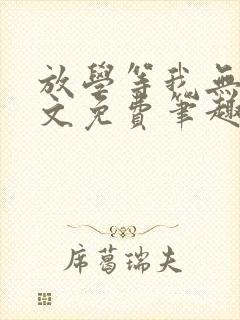 放學等我無
文免費筆趣
席葛瑞夫